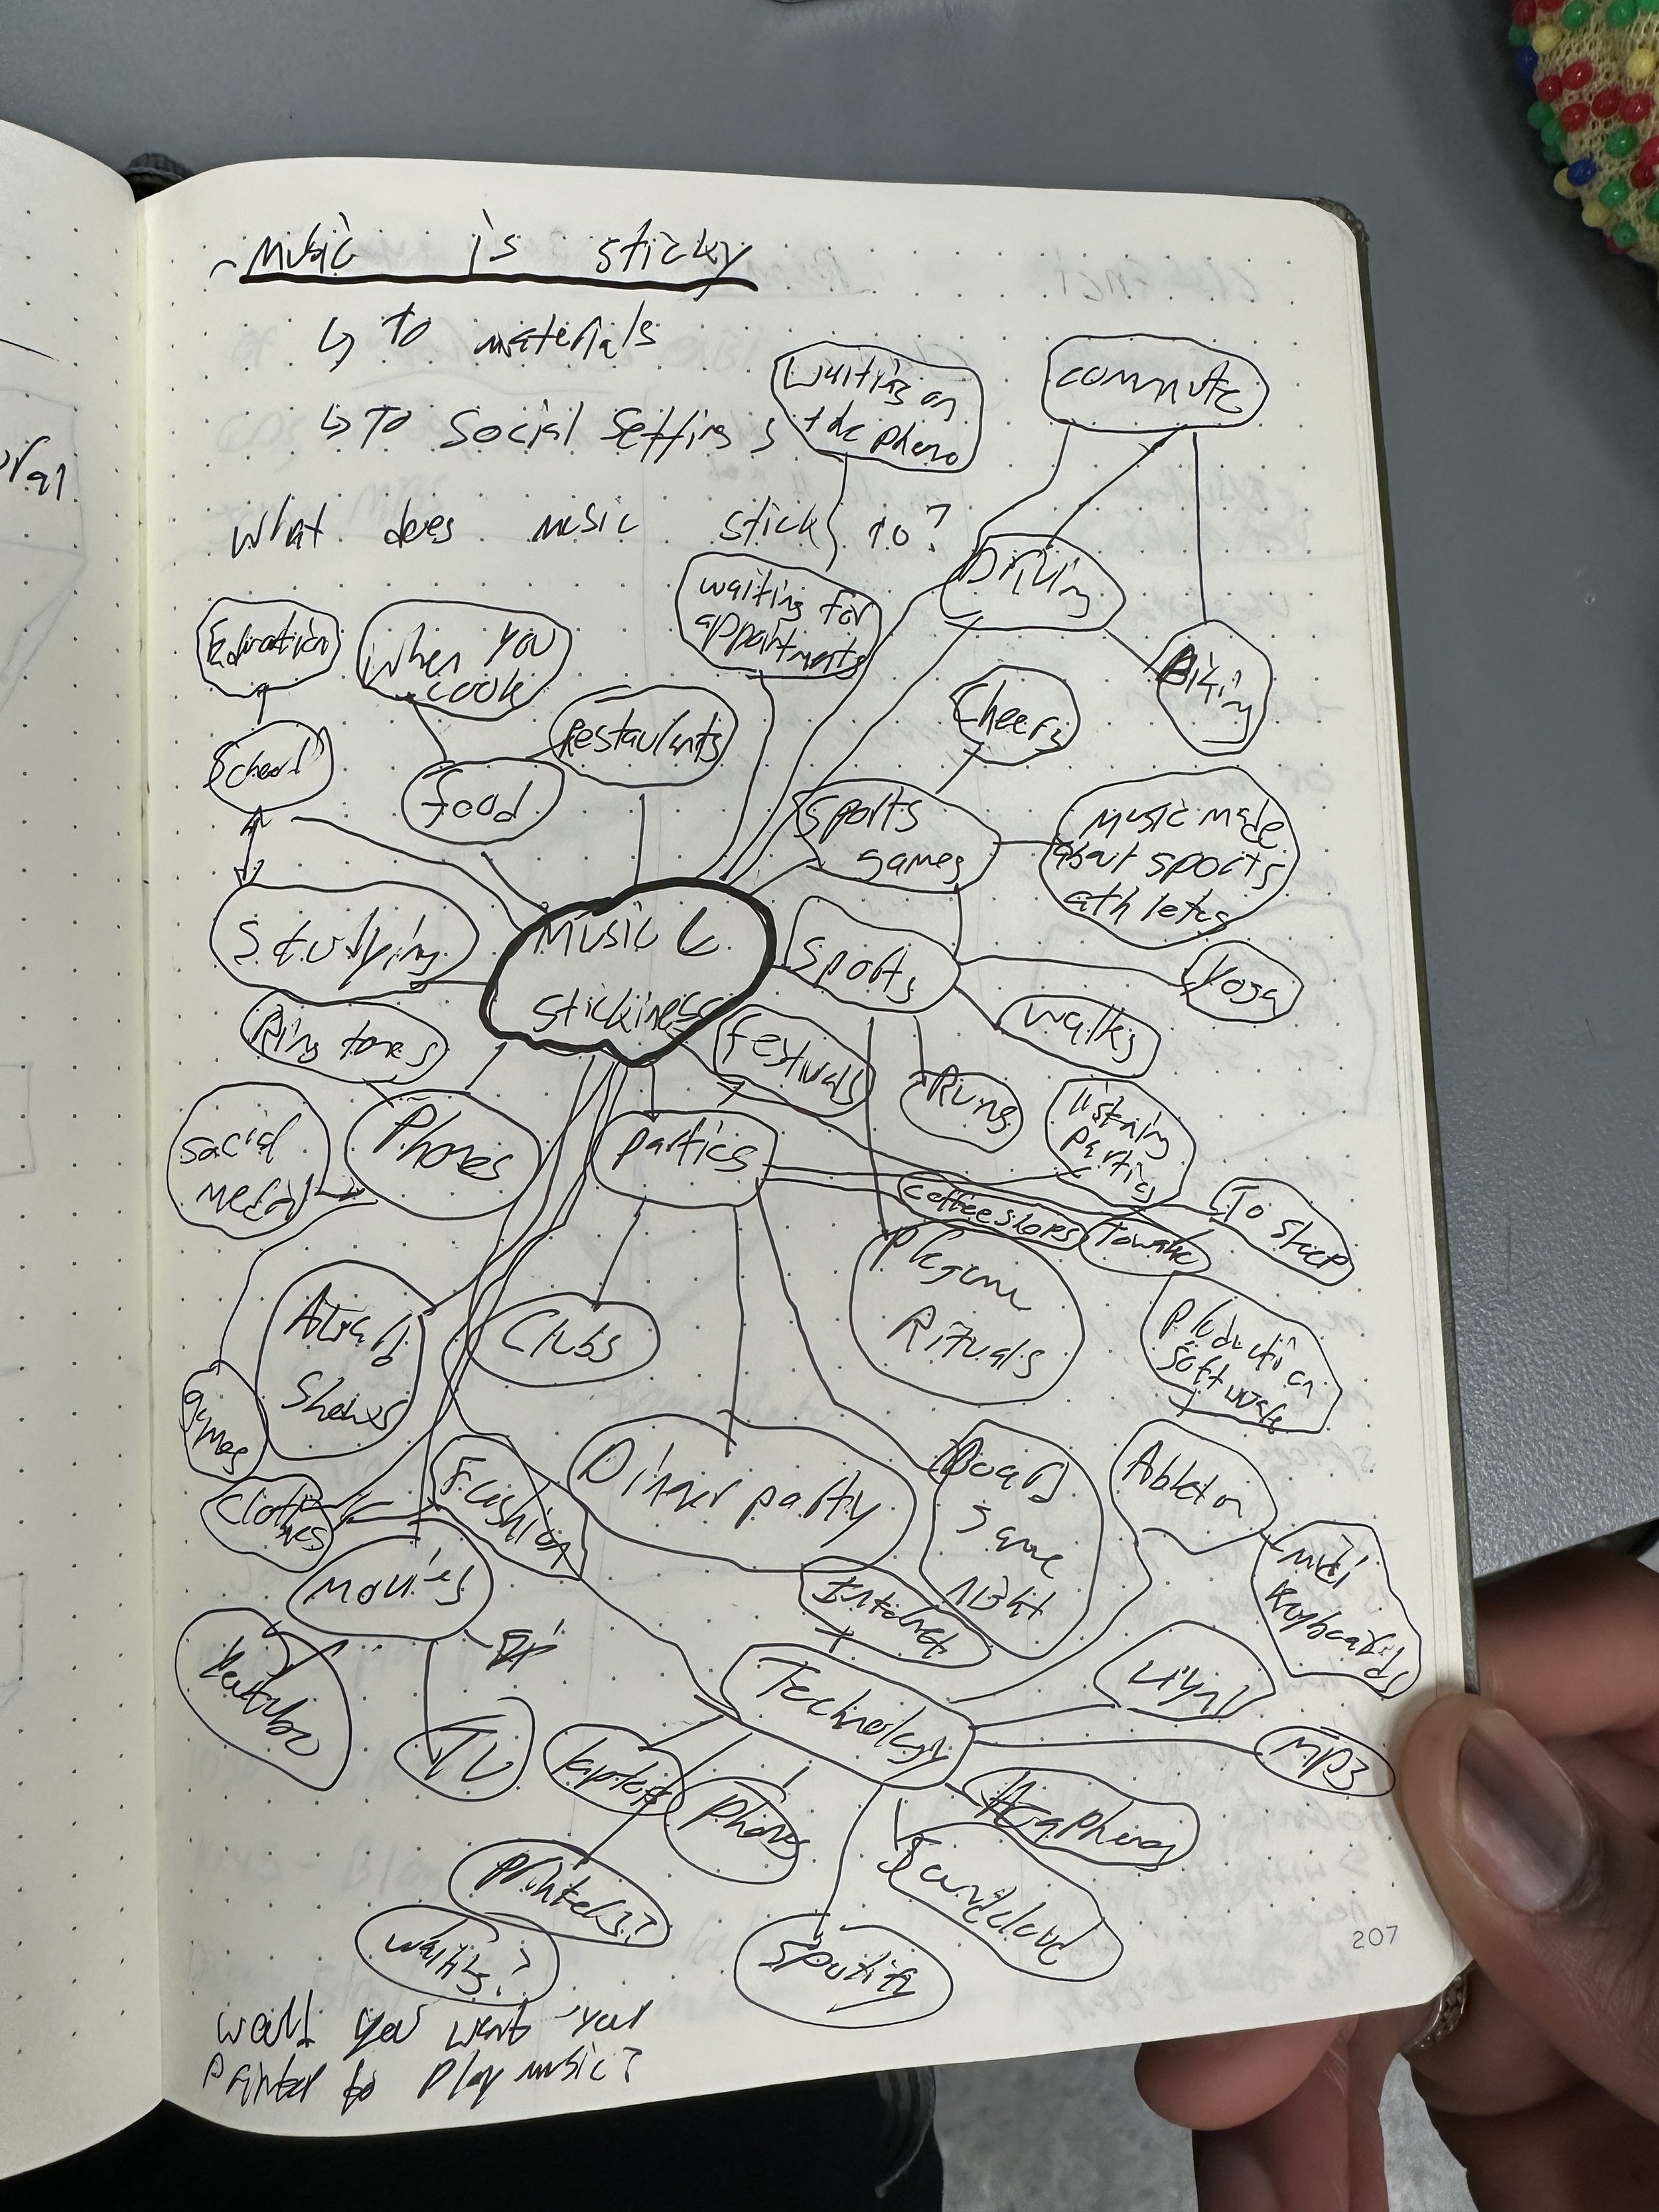 ~ Music is sticky
↳ To materials
↳ To Social Settings
What does music stick to?
Waiting on
the phone
commute
Driving
Biking
waiting for
appointments
Education
When you
cook
Restaurants
School
food
Cheers
Sports
games
Music made
about sports
athletes
Studying
Music &
stickiness
Sports
Yoga
Walks
Ring tones
festivals
Runs
listening
parties
social
media
Phones
parties
coffee shops
To wake
To sleep
Pregame
Rituals
Production
Software
Award
Shows
Clubs
games
clothes
Fashion
Dinner party
Board
game
night
Ableton
midi
keyboards
Movies
Internet
Technology
Vinyl
MP3
TV
laptops
phones
printers?
waiting?
Soundcloud
Spotify
207
would you want your
printer to play music?